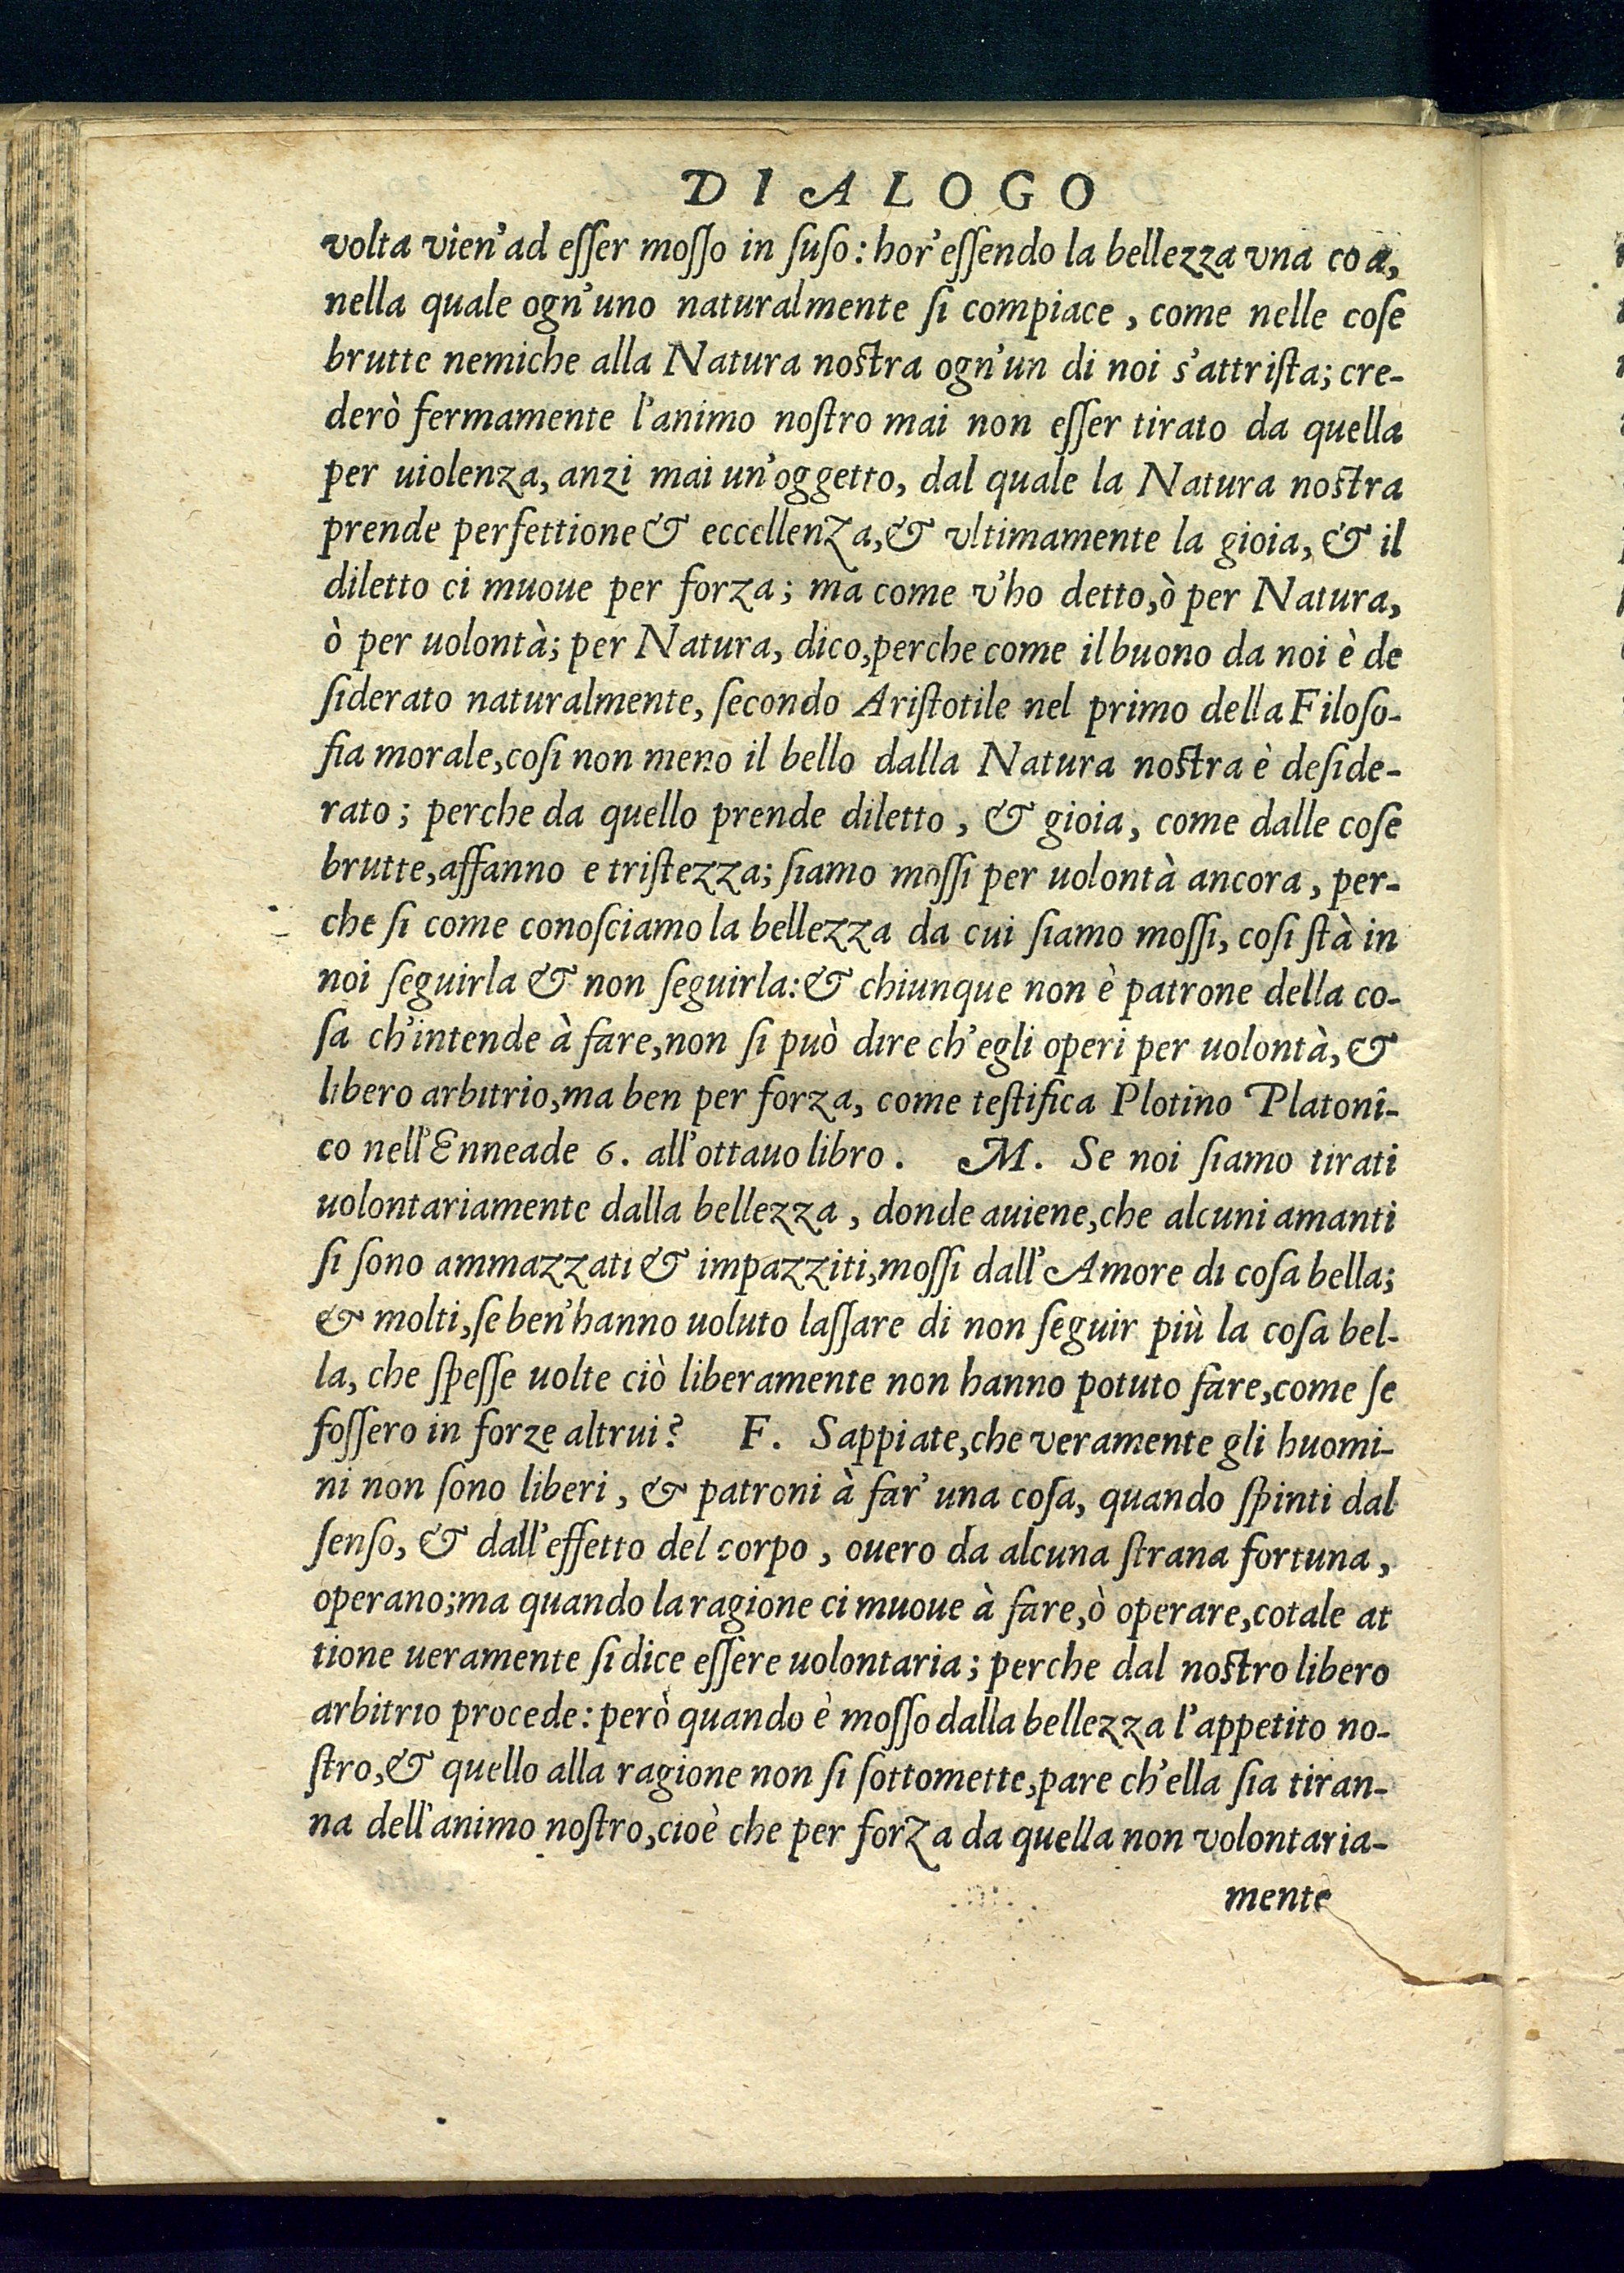 DIALOGO
volta vien'ad esſer mosſo in ſuſo: hor'esſendo la bellezza vna co a,
nella quale ogn'uno naturalmente ſi compiace, come nelle coſe
brutte nemiche alla Natura noſtra ogn'un di noi s'attriſta; cre-
derò fermamente l'animo noſtro mai non eſſer tirato da quella
per uiolenza, anzi mai un'oggetto, dal quale la Natura noſtra
prende perfettione & eccellenza, & vltimamente la gioia, & il
diletto ci muoue per forza; ma come v'ho detto, ò per Natura,
ò per uolontà; per Natura, dico, perche come il buono da noi è de
ſiderato naturalmente, ſecondo Ariſtotile nel primo della Filoſo-
fia morale, coſi non meno il bello dalla Natura noſtra è deſide-
rato; perche da quello prende diletto, & gioia, come dalle coſe
brutte, affanno e triſtezza; ſiamo moſſi per uolontà ancora, per-
che ſi come conoſciamo la bellezza da cui ſiamo moſſi, coſi ſtà in
noi ſeguirla & non ſeguirla: & chiunque non è patrone della co-
ſa ch'intende à fare, non ſi può dire ch'egli operi per uolontà, &
libero arbitrio, ma ben per forza, come teſtifica Plotino Platoni-
co nell'Enneade 6. all'ottauo libro. M. Se noi ſiamo tirati
uolontariamente dalla bellezza, donde auiene, che alcuni amanti
ſi ſono ammazzati & impazziti, moſſi dall'Amore di coſa bella;
& molti, ſe ben'hanno uoluto laſſare di non ſeguir più la coſa bel-
la, che ſpeſſe uolte ciò liberamente non hanno potuto fare, come ſe
foſſero in forze altrui? F. Sappiate, che veramente gli huomi-
ni non ſono liberi, & patroni à far' una coſa, quando ſpinti dal
ſenſo, & dall'effetto del corpo, ouero da alcuna ſtrana fortuna,
operano; ma quando la ragione ci muoue à fare, ò operare, cotale at
tione ueramente ſi dice eſſere uolontaria; perche dal noſtro libero
arbitrio procede: però quando è moſſo dalla bellezza l'appetito no-
ſtro, & quello alla ragione non ſi ſottomette, pare ch'ella ſia tiran-
na dell'animo noſtro, cioè che per forza da quella non volontaria-
mente